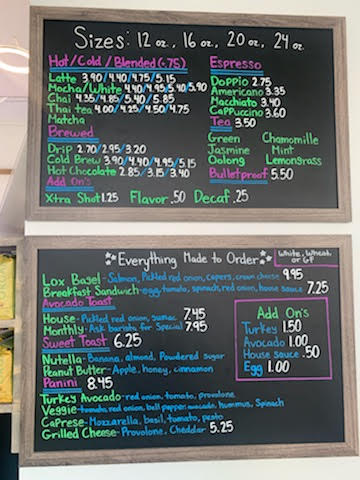 Sizes: 12 oz., 16 oz., 20 oz., 24 oz.
Hot/Cold/Blended(+.75)
Latte 3.90/4.40/4.75/5.15
Mocha/White 4.40/4.95/5.40/5.90
Chai 4.35/4.85/5.40/5.85
Thai tea 4.00/4.25/4.50/4.75
Matcha
Brewed
Drip 2.70/2.95/3.20
Cold Brew 3.90/4.40/4.95/5.15
Hot Chocolate 2.85/3.15/3.40
Add On's
Xtra Shot 1.25 Flavor .50 Decaf .25
Espresso
Doppio 2.75
Americano 3.35
Macchiato 3.40
Cappuccino 3.60
Tea 3.50
Green Chamomille
Jasmine Mint
Oolong Lemongrass
Bulletproof 5.50
Everything Made to Order
White, Wheat, or GF
Lox Bagel - Salmon, Pickled red onion, capers, cream cheese 9.95
Breakfast Sandwich - egg, tomato, spinach, red onion, house sauce 7.25
Avocado Toast
House - Pickled red onion, sumac 7.45
Monthly - Ask barista for Special 7.95
Sweet Toast 6.25
Nutella - Banana, almond, Powdered sugar
Peanut Butter - Apple, honey, cinnamon
Panini 8.45
Turkey Avocado - red onion, tomato, provolone
Veggie - tomato, red onion, bell pepper, avocado, hummus, Spinach
Caprese - Mozzarella, basil, tomato, pesto
Grilled Cheese - Provolone, Cheddar 5.25
Add On's
Turkey 1.50
Avocado 1.00
House sauce .50
Egg 1.00